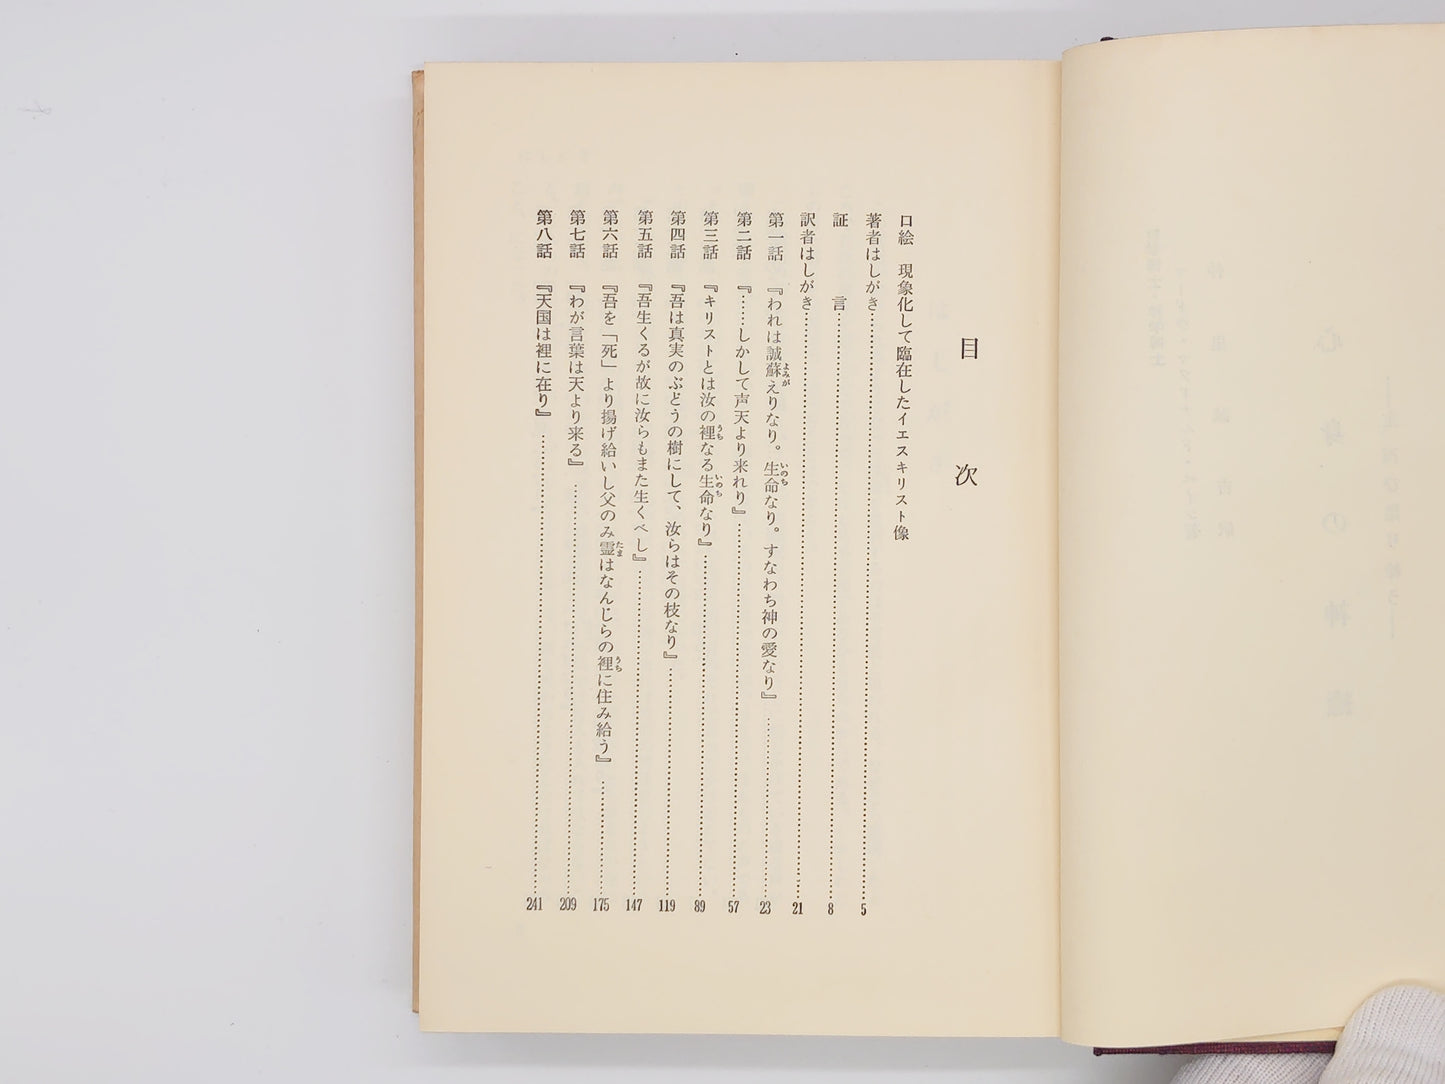 目次
口絵　現象化して臨在したイエスキリスト像
著者はしがき……………………5
証　言……………………8
訳者はしがき……………………21
第一話　『われは誠蘇えりなり。生命なり。すなわち神の愛なり』……………………23
よみが
いのち
第二話　『……しかして声天より来れり』……………………57
第三話　『キリストとは汝の裡なる生命なり』……………………89
うち
いのち
第四話　『吾は真実のぶどうの樹にして、汝らはその枝なり』……………………119
第五話　『吾生くるが故に汝らもまた生くべし』……………………147
第六話　『吾を「死」より揚げ給いし父のみ霊はなんじらの裡に住み給う』……………………175
たま
うち
第七話　『わが言葉は天より来る』……………………209
第八話　『天国は裡に在り』……………………241